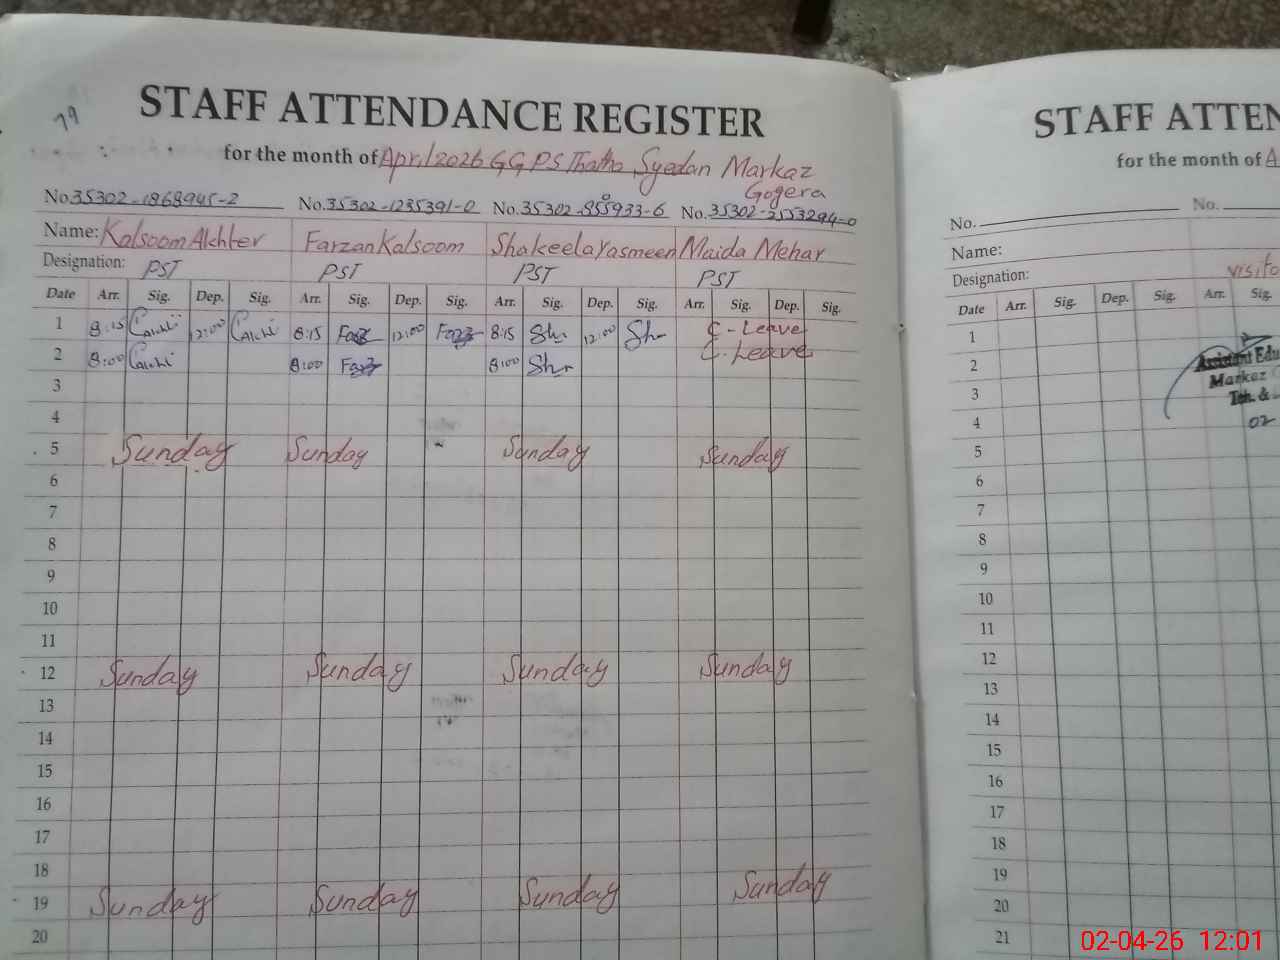 79
STAFF ATTENDANCE REGISTER
for the month of April 2026 GGPS Thatha Syedan Markaz
Gogera
No. 35302-1868945-2 No. 35302-1235391-0 No. 35302-855933-6 No. 35302-2553294-0
Name: Kalsoom Akhter Farzan Kalsoom Shakeela Yasmeen Maida Mehar
Designation: PST PST PST PST
Date Arr. Sig. Dep. Sig. Arr. Sig. Dep. Sig. Arr. Sig. Dep. Sig. Arr. Sig. Dep. Sig.
1 8:15 12:00 8:15 12:00 8:15 12:00 C-Leave
2 8:00 8:00 8:00 C.Leave
3
4
5 Sunday Sunday Sunday Sunday
6
7
8
9
10
11
12 Sunday Sunday Sunday Sunday
13
14
15
16
17
18
19 Sunday Sunday Sunday Sunday
20
STAFF ATTEN
for the month of A
No. No.
Name:
Designation: visito
Date Arr. Sig. Dep. Sig. Arr. Sig.
1
2 Assistant Edu
3 Markaz
4 Teh. &
02
5
6
7
8
9
10
11
12
13
14
15
16
17
18
19
20
21
02-04-26 12:01